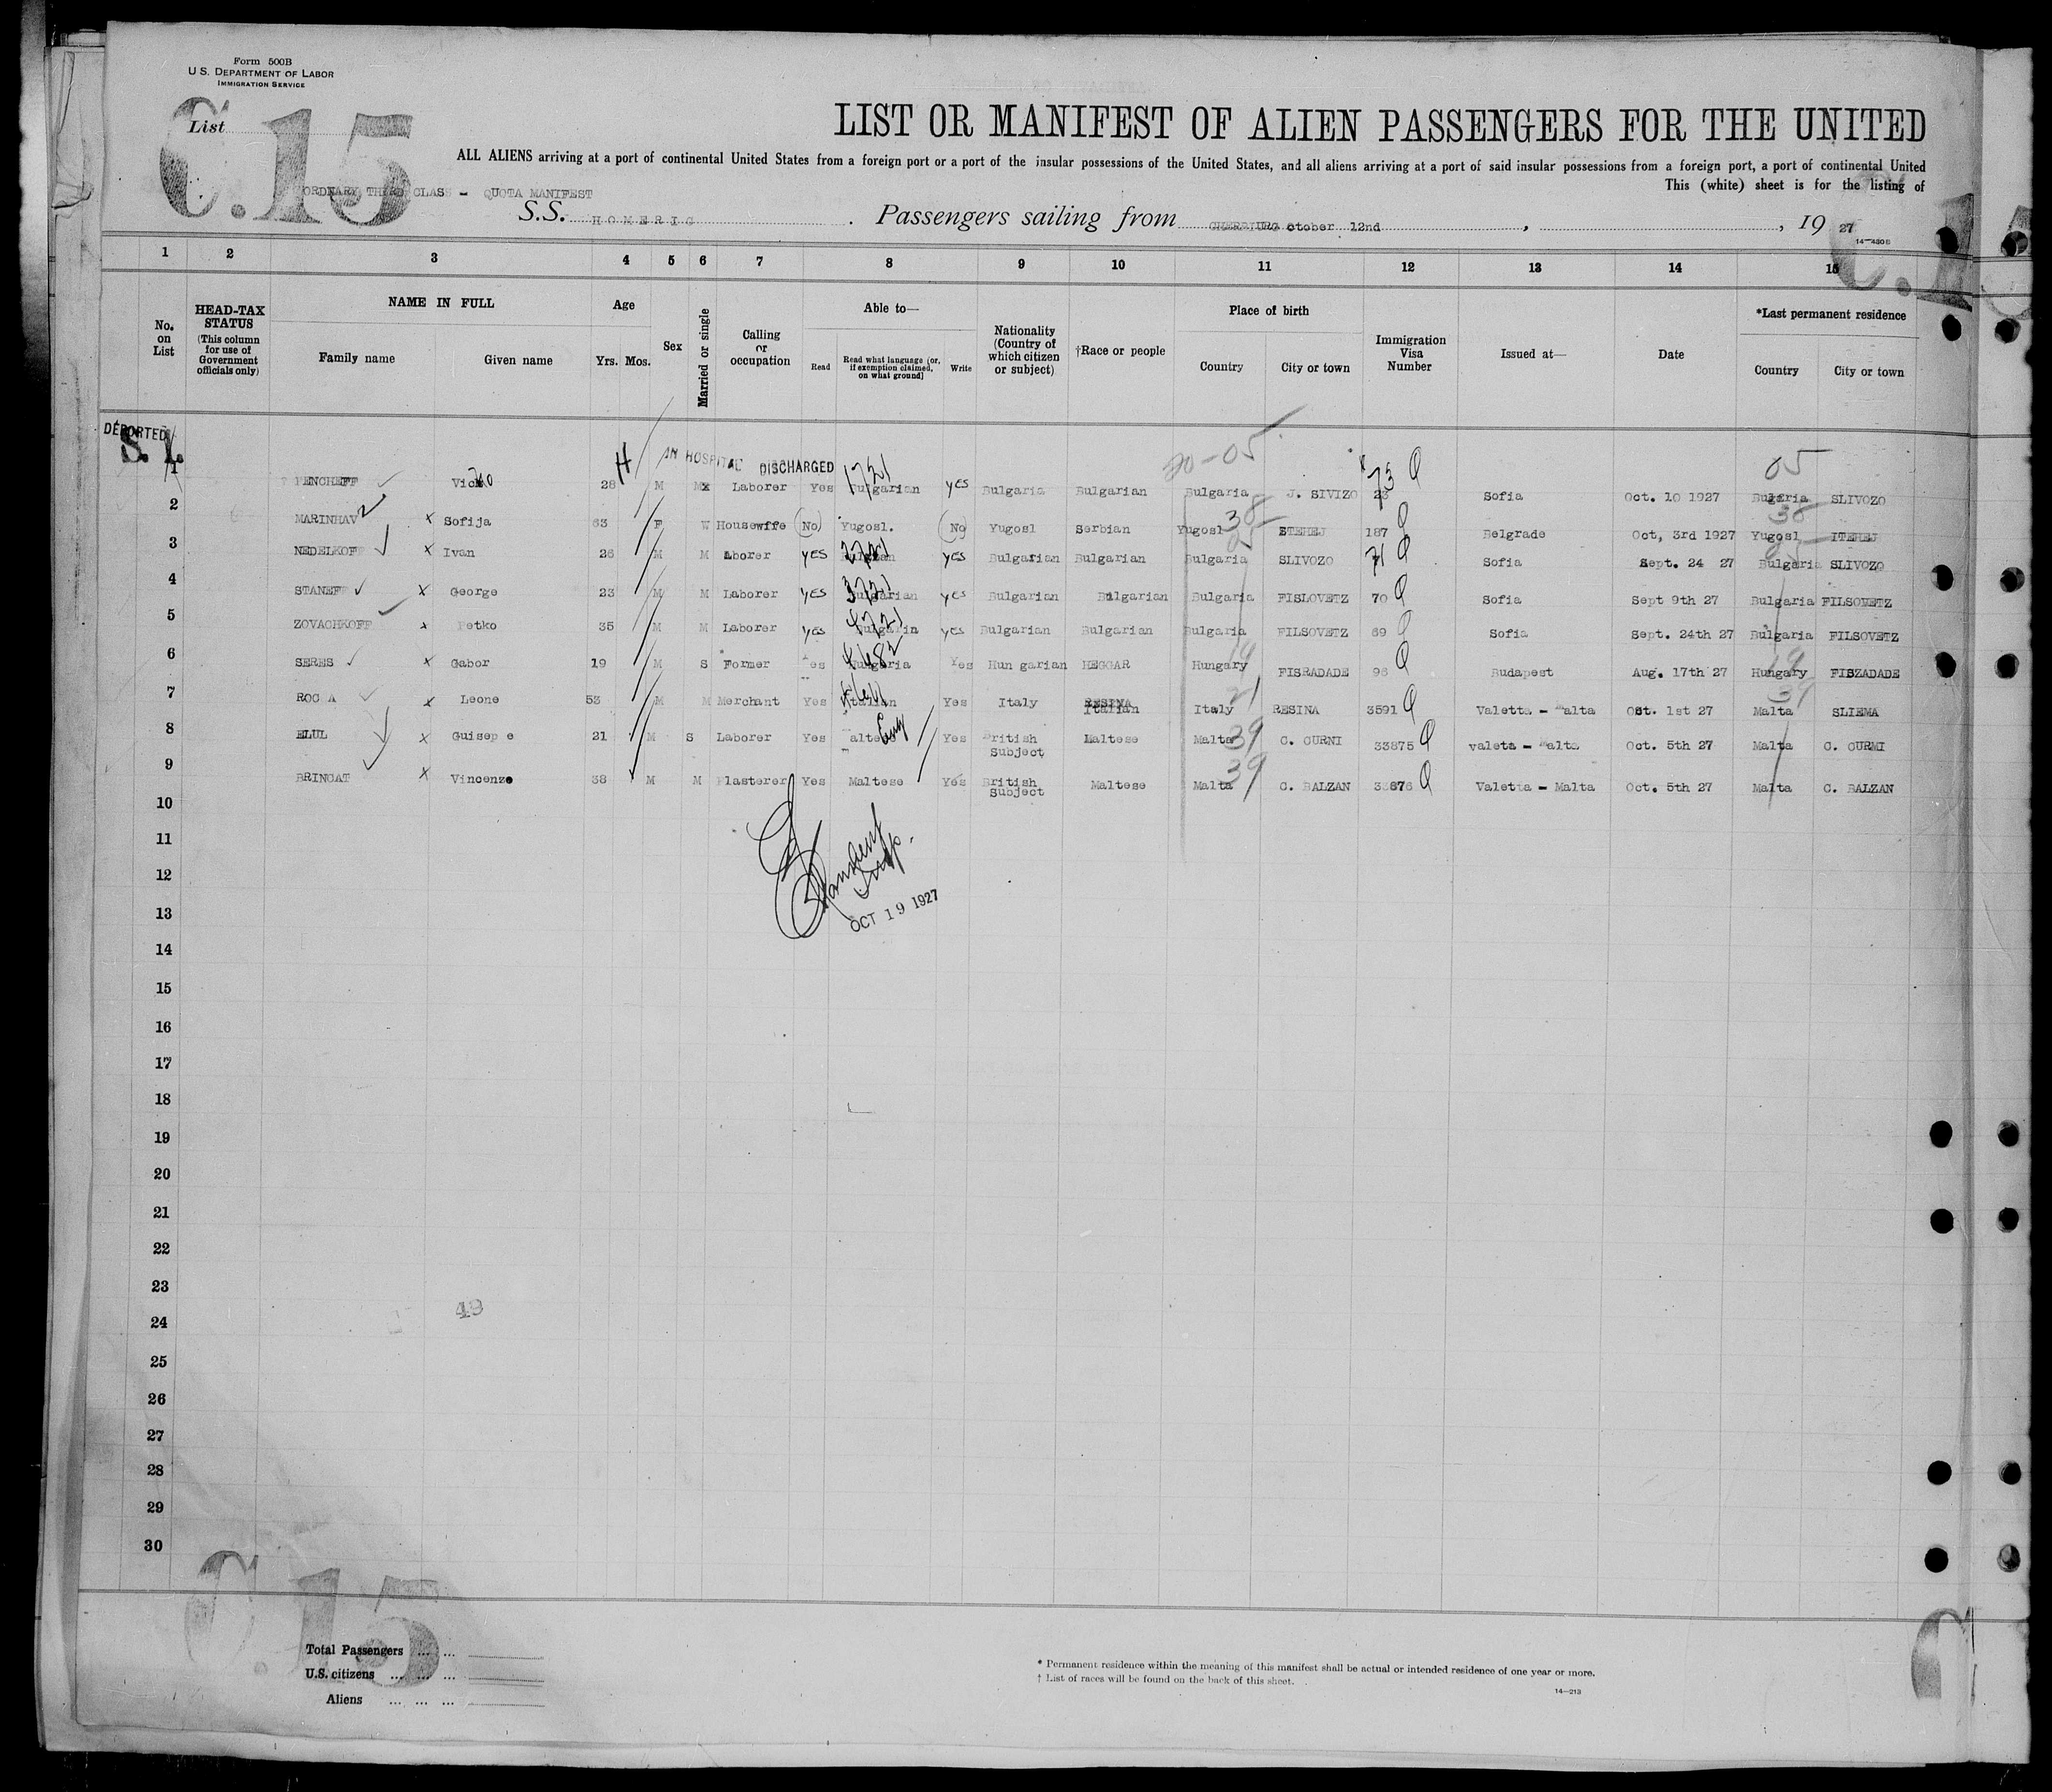 Form 500B
U.S. DEPARTMENT OF LABOR
IMMIGRATION SERVICE
List
C.15
LIST OR MANIFEST OF ALIEN PASSENGERS FOR THE UNITED
ALL ALIENS arriving at a port of continental United States from a foreign port or a port of the insular possessions of the United States, and all aliens arriving at a port of said insular possessions from a foreign port, a port of continental United
This (white) sheet is for the listing of
ORDNARY THIRD CLASS - QUOTA MANIFEST
S.S. HOMERIC . Passengers sailing from CHERBURG ctober 12nd , , 19 27
14-480B
1 2 3 4 5 6 7 8 9 10 11 12 13 14 15
No. on List
HEAD-TAX STATUS (This column for use of Government officials only)
NAME IN FULL
Family name Given name
Age
Yrs. Mos.
Sex
Married or single
Calling or occupation
Able to—
Read
Read what language (or, if exemption claimed, on what ground)
Write
Nationality (Country of which citizen or subject)
†Race or people
Place of birth
Country City or town
Immigration Visa Number
Issued at—
Date
*Last permanent residence
Country City or town
DEPORTED
S.I.
H HOSPITAL DISCHARGED 1721 20-05 73 Q 05
1 PENCHEFF 28 M Mx Laborer Yes Bulgarian YES Bulgaria Bulgarian Bulgaria J. SIVIZO 23 Sofia Oct. 10 1927 Bulgaria SLIVOZO
2 MARINHAV X Sofija 63 F W Housewife No Yugosl. No Yugosl Serbian Yugosl 38 STEHEJ 187 Q Belgrade Oct, 3rd 1927 Yugosl 38 ITEHEJ
3 NEDELKOFF X Ivan 26 M M aborer YES YES Bulgarian Bulgarian Bulgaria SLIVOZO 71 Q Sofia Sept. 24 27 Bulgaria SLIVOZO
4 STANEFF X George 23 M M Laborer YES 3721 Bulgarian YES Bulgarian Bulgarian Bulgaria FISLOVETZ 70 Q Sofia Sept 9th 27 Bulgaria FILSOVETZ
5 ZOVACHKOFF X Petko 35 M M Laborer YES 4721 Bulgarin YES Bulgarian Bulgarian Bulgaria FILSOVETZ 69 Q Sofia Sept. 24th 27 Bulgaria FILSOVETZ
6 SERES X Gabor 19 M S Former Yes Hungaria Yes Hun garian HEGGAR Hungary 19 FISRADADE 96 Q Budapest Aug. 17th 27 Hungary 19 FISZADADE
7 ROC A X Leone 53 M M Merchant Yes Italian Yes Italy Italian Italy 21 RESINA 3591 Q Valetta - Malta Oct. 1st 27 Malta 39 SLIEMA
8 ELUL X Guisep e 21 M S Laborer Yes altese Eng Yes British Subject Maltese Malta 39 C. CURNI 33875 Q valeta - Malta Oct. 5th 27 Malta C. CURMI
9 BRINCAT X Vincenzo 38 M M Plasterer Yes Maltese Yes British Subject Maltese Malta 39 C. BALZAN 33876 Q Valetta - Malta Oct. 5th 27 Malta C. BALZAN
10
11
Insp.
12
OCT 19 1927
13
14
15
16
17
18
19
20
21
22
23
49
24
25
26
27
28
29
30
C.15
Total Passengers ... ...
U.S. citizens ... ... ...
Aliens ... ... ...
* Permanent residence within the meaning of this manifest shall be actual or intended residence of one year or more.
† List of races will be found on the back of this sheet.
14-213